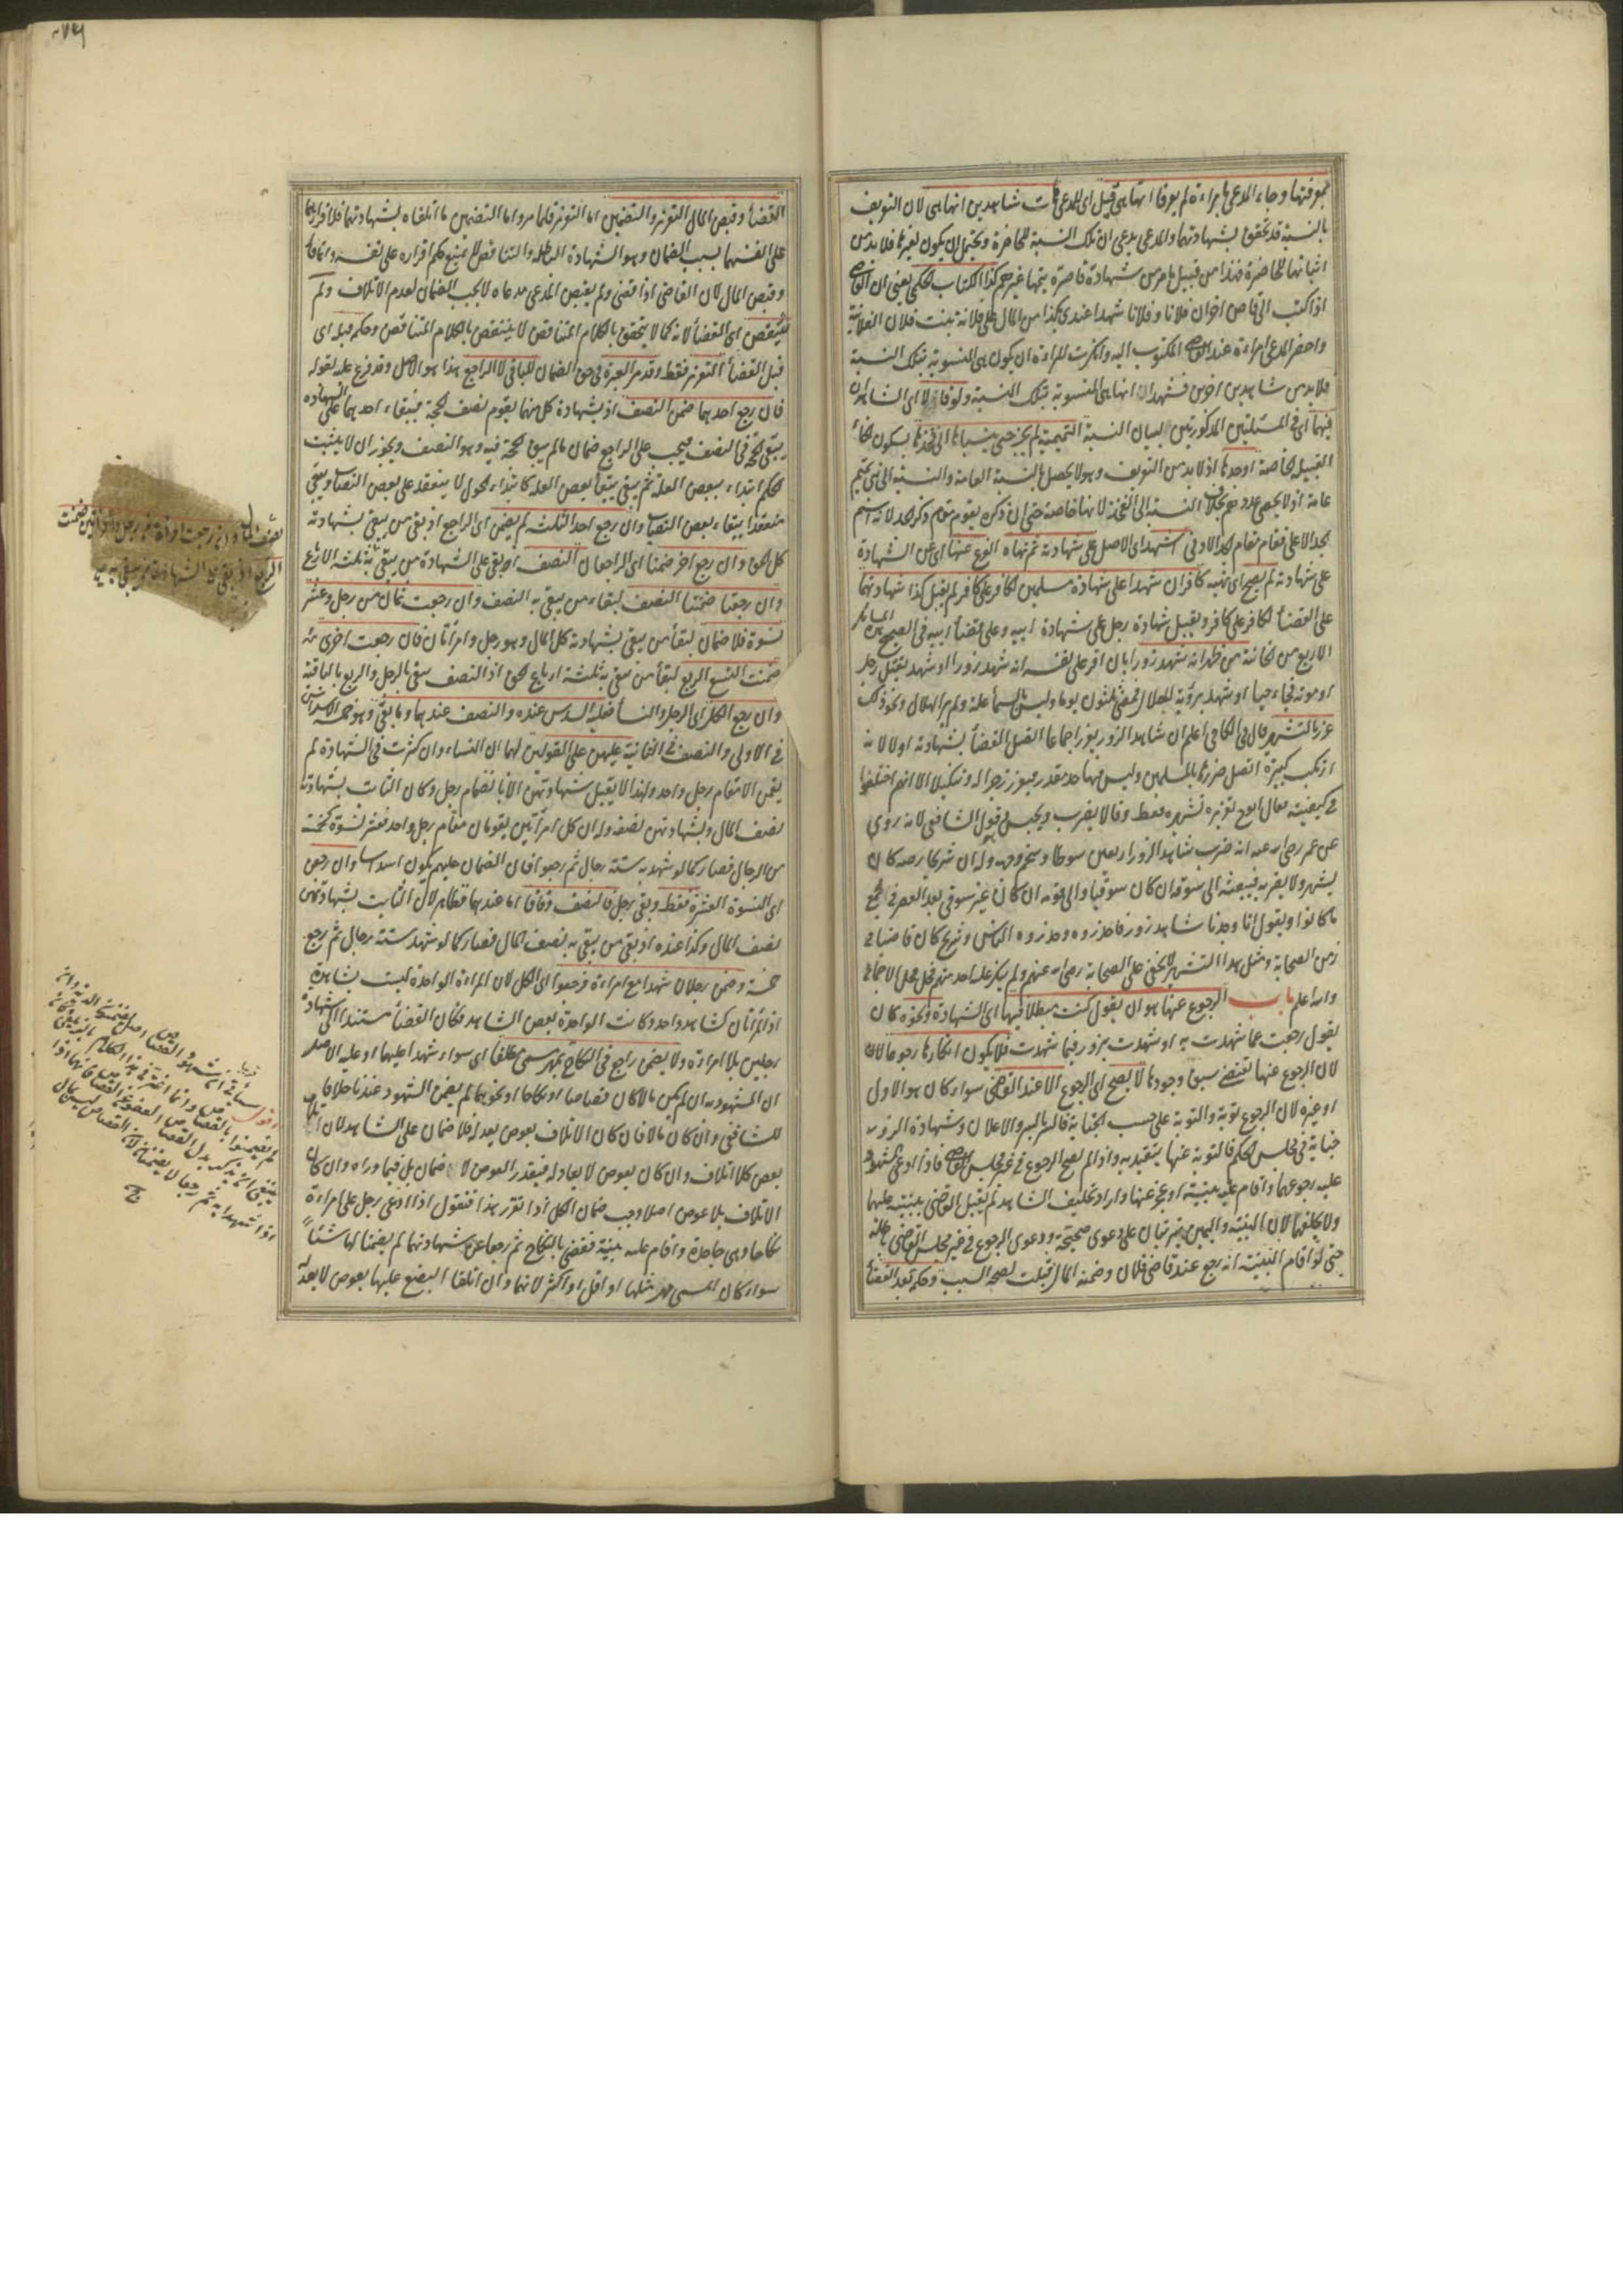 بمعرفتها وجاء المدعي بامراءة لم يعرفا انها هي قيل اى للمدعي هات شاهدين انها هي لان التعريف
بالنسبة قد تحقق بشهادتهما والمدعي يدعي ان تلك النسبة للحاضرة ويحتمل ان يكون لغيرها فلا بد من
اثباتها للحاضرة فهذا من قبيل ما مر من شهادة قاصرة يتمها غيرهم كذا الكتاب الحكمي يعني ان القاضي
اذا كتب الى قاض اخر ان فلانا وفلانا شهدا عندي بكذا من المال على فلانة بنت فلان الفلانية
واحضر المدعي امراءة عند القاضي المكتوب اليه وانكرت المراءة ان يكون هي المنسوبة بتلك النسبة
فلا بد من شاهدين اخرين فشهدا انها هي المنسوبة بتلك النسبة ولو قالا اى الشاهدان
فيهما اى في المسئلتين المذكورتين لبيان النسبة التميمية لم يجز حتى ينسباها الى فخذها بسكون الخاء
القبيلة الخاصة او جدها اذ لا بد من التعريف وهو لا يحصل بالنسبة العامة والنسبة الى بني تميم
عامة اذ لا يحصى عددهم بخلاف النسبة الى الفخذ لانها خاصة حتى ان ذكره يقوم مقام ذكر الجد لانه اسم
الجد الاعلى فقام مقام الجد الادنى اشهد اى الاصل على شهادته ثم نهاه الفرع عنها اى عن الشهادة
على شهادته لم يصح اى نهيه كافران شهدا على شهادة مسلمين لكافر على كافر لم يقبل كذا شهادتهما
على القضاء لكافر على كافر ويقبل شهادة رجل على شهادة ابيه وعلى قضاء ابيه في الصحيح
من الخانية من ظهر انه شهد زورا بان اقر على نفسه انه شهد زورا او شهد بقتل رجل
او موته فجاء حيا او شهد برؤية الهلال فمضى ثلثون يوما وليس بالسماء علة ولم ير الهلال ونحو ذلك
عزر بالتشهير قال في الكافي اعلم ان شاهد الزور يعزر اجماعا اتصل القضاء بشهادته اولا لانه
ارتكب كبيرة اتصل ضررها بالمسلمين وليس فيها حد مقدر فيعزر زجرا له وتنكيلا الا انهم اختلفوا
في كيفيته فقال ابوح تعزيره تشهيره فقط وقالا يضرب ويحبس وهو قول الشافعي لانه روي
عن عمر رضي الله عنه انه ضرب شاهد الزور اربعين سوطا وسخم وجهه وله ان شريحا رحمه كان
يشهر ولا يضربه فيبعثه الى سوقه ان كان سوقيا والى قومه ان كان غير سوقي بعد العصر في اجمع
ما كانوا ويقول انا وجدنا شاهد زور فاحذروه وحذروه الناس وشريح كان قاضيا في
زمن الصحابة ومثل هذا التشهير لا يخفى على الصحابة رضي الله عنهم ولم ينكر عليه احد منهم فحل محل الاجماع
والله اعلم باب الرجوع عنها هو ان يقول كنت مبطلا فيها اى الشهادة ونحوه كان
يقول رجعت عما شهدت به او شهدت بزور فيما شهدت فلا يكون انكارها رجوعا لان
لان الرجوع عنها تقتضي سبق وجودها لا يصح اى الرجوع الا عند القاضي سواء كان هو الاول
او غيره لان الرجوع توبة والتوبة على حسب الجناية فالسر بالسر والاعلان وشهادة الزور
جناية في مجلس الحكم فالتوبة عنها يتقيد به واذا لم يصح الرجوع في غير مجلس القاضي فاذا ادعى المشهود
عليه رجوعهما واقام عليه بينة او عجز عنها واراد تحليف الشاهد لم يقبل القاضي بينته عليهما
ولا يحلفهما لان البينة واليمين يترتبان على دعوى صحيحة ودعوى الرجوع في غير مجلس القاضي باطلة
حتى لو اقام البينة انه رجع عند قاضي فلان وضمنه المال قبلت لصحة السبب وحكمه بعد القضاء
القضاء وقبض المال التعزير والتضمين اما التعزير فلما مر واما التضمين ما اتلفاه بشهادتهما فلاقرارهما
على انفسهما بسبب الضمان وهو الشهادة الباطلة والتناقض لا يمنع حكم اقراره على نفسه وانما قال
وقبض المال لان القاضي اذا قضى ولم يقبض المدعي مدعاه لا يجب الضمان لعدم الاتلاف ولم
ينتقض اى القضاء لانه كما لا يتحقق بالكلام المتناقض لا ينتقض بالكلام المتناقض وحكمه قبله اى
قبل القضاء التعزير فقط وقد مر العبرة في حق الضمان للباقي لا الراجع هذا هو الاصل وقد فرع عليه لقوله
فان رجع احدهما ضمن النصف اذ بشهادة كل منهما يقوم نصف الحجة فببقاء احدهما على الشهادة
يبقى الحجة في النصف فيجب على الراجع ضمان ما لم يبق الحجة فيه وهو النصف ويجوز ان لا يثبت
الحكم ابتداء ببعض العلة ثم يبقى ببقاء بعض العلة كابتداء الحول لا ينعقد على بعض النصاب ويبقى
منعقدا ببقاء بعض النصاب وان رجع احد الثلثة لم يضمن اى الراجع اذ بقي من يبقى بشهادته
كل الحق وان رجع اخر ضمنا اى الراجعان النصف اذ بقي على الشهادة من يبقى به ثلثة الارباع
وان رجعتا ضمنتا النصف لبقاء من يبقى به النصف وان رجعت ثمان من رجل وعشر
نسوة فلا ضمان لبقاء من يبقى بشهادته كل المال وهو رجل وامرأتان فان رجعت اخرى
ضمنت التسع الربع لبقاء من يبقى به ثلثة ارباع الحق اذ النصف يبقى بالرجل والربع بالباقية
وان رجع الكل اى الرجل والنساء فعليه السدس عنده والنصف عندهما وما بقي وهو خمسة الاسداس
في الاولى والنصف في الثانية عليهن على القولين لهما ان النساء وان كثرت في الشهادة لم
يقمن الا مقام رجل واحد ولهذا لا يقبل شهادتهن الا بانضمام رجل وكان الثابت بشهادته
نصف المال وبشهادتهن نصفه وله ان كل امرأتين يقومان مقام رجل واحد فعشر نسوة كخمسة
من الرجال فصار كما لو شهد به ستة رجال ثم رجعوا فان الضمان عليهم يكون اسداسا وان رجعن
اى النسوة العشرة فقط وبقي رجل فالنصف وفاقا اما عندهما فظاهر لان الثابت بشهادتهن
نصف المال وكذا عنده اذ بقي من يبقى به نصف المال فصار كما لو شهد ستة رجال ثم رجع
خمسة وضمن رجلان شهدا مع امراءة فرجعوا اى الكل لان المراءة الواحدة ليست بشاهدة
اذ المرأتان كشاهد واحد وكانت الواحدة بعض الشاهد فكان القضاء مستندا الى شهادة
رجلين بلا امراءة ولا يضمن راجع في النكاح بمهر مسمى مطلقا اى سواء شهدا عليها او عليه الاصل
ان المشهود به ان لم يكن مالا كان قصاصا او نكاحا او نحوهما لم يضمن الشهود عندنا خلافا
للشافعي وان كان مالا فان كان الاتلاف بعوض يعدله فلا ضمان على الشاهد لان الاتلاف
بعوض كلا اتلاف وان كان بعوض لا يعادله فبقدر العوض لا ضمان بل فيما وراه وان كان
الاتلاف بلا عوض اصلا وجب ضمان الكل اذا تقرر هذا فنقول اذا ادعى رجل على امراءة
نكاحا وهي جاحدة واقام عليه بينة فقضى بالنكاح ثم رجعا عن شهادتهما لم يضمنا لها شيئا
سواء كان المسمى مهر مثلها او اقل او اكثر لانهما وان اتلفا البضع عليها بعوض لا يعدله